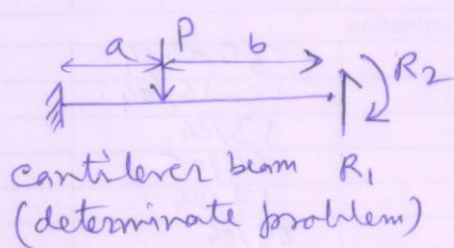 a P b
R2
cantilever beam R1
(determinate problem)